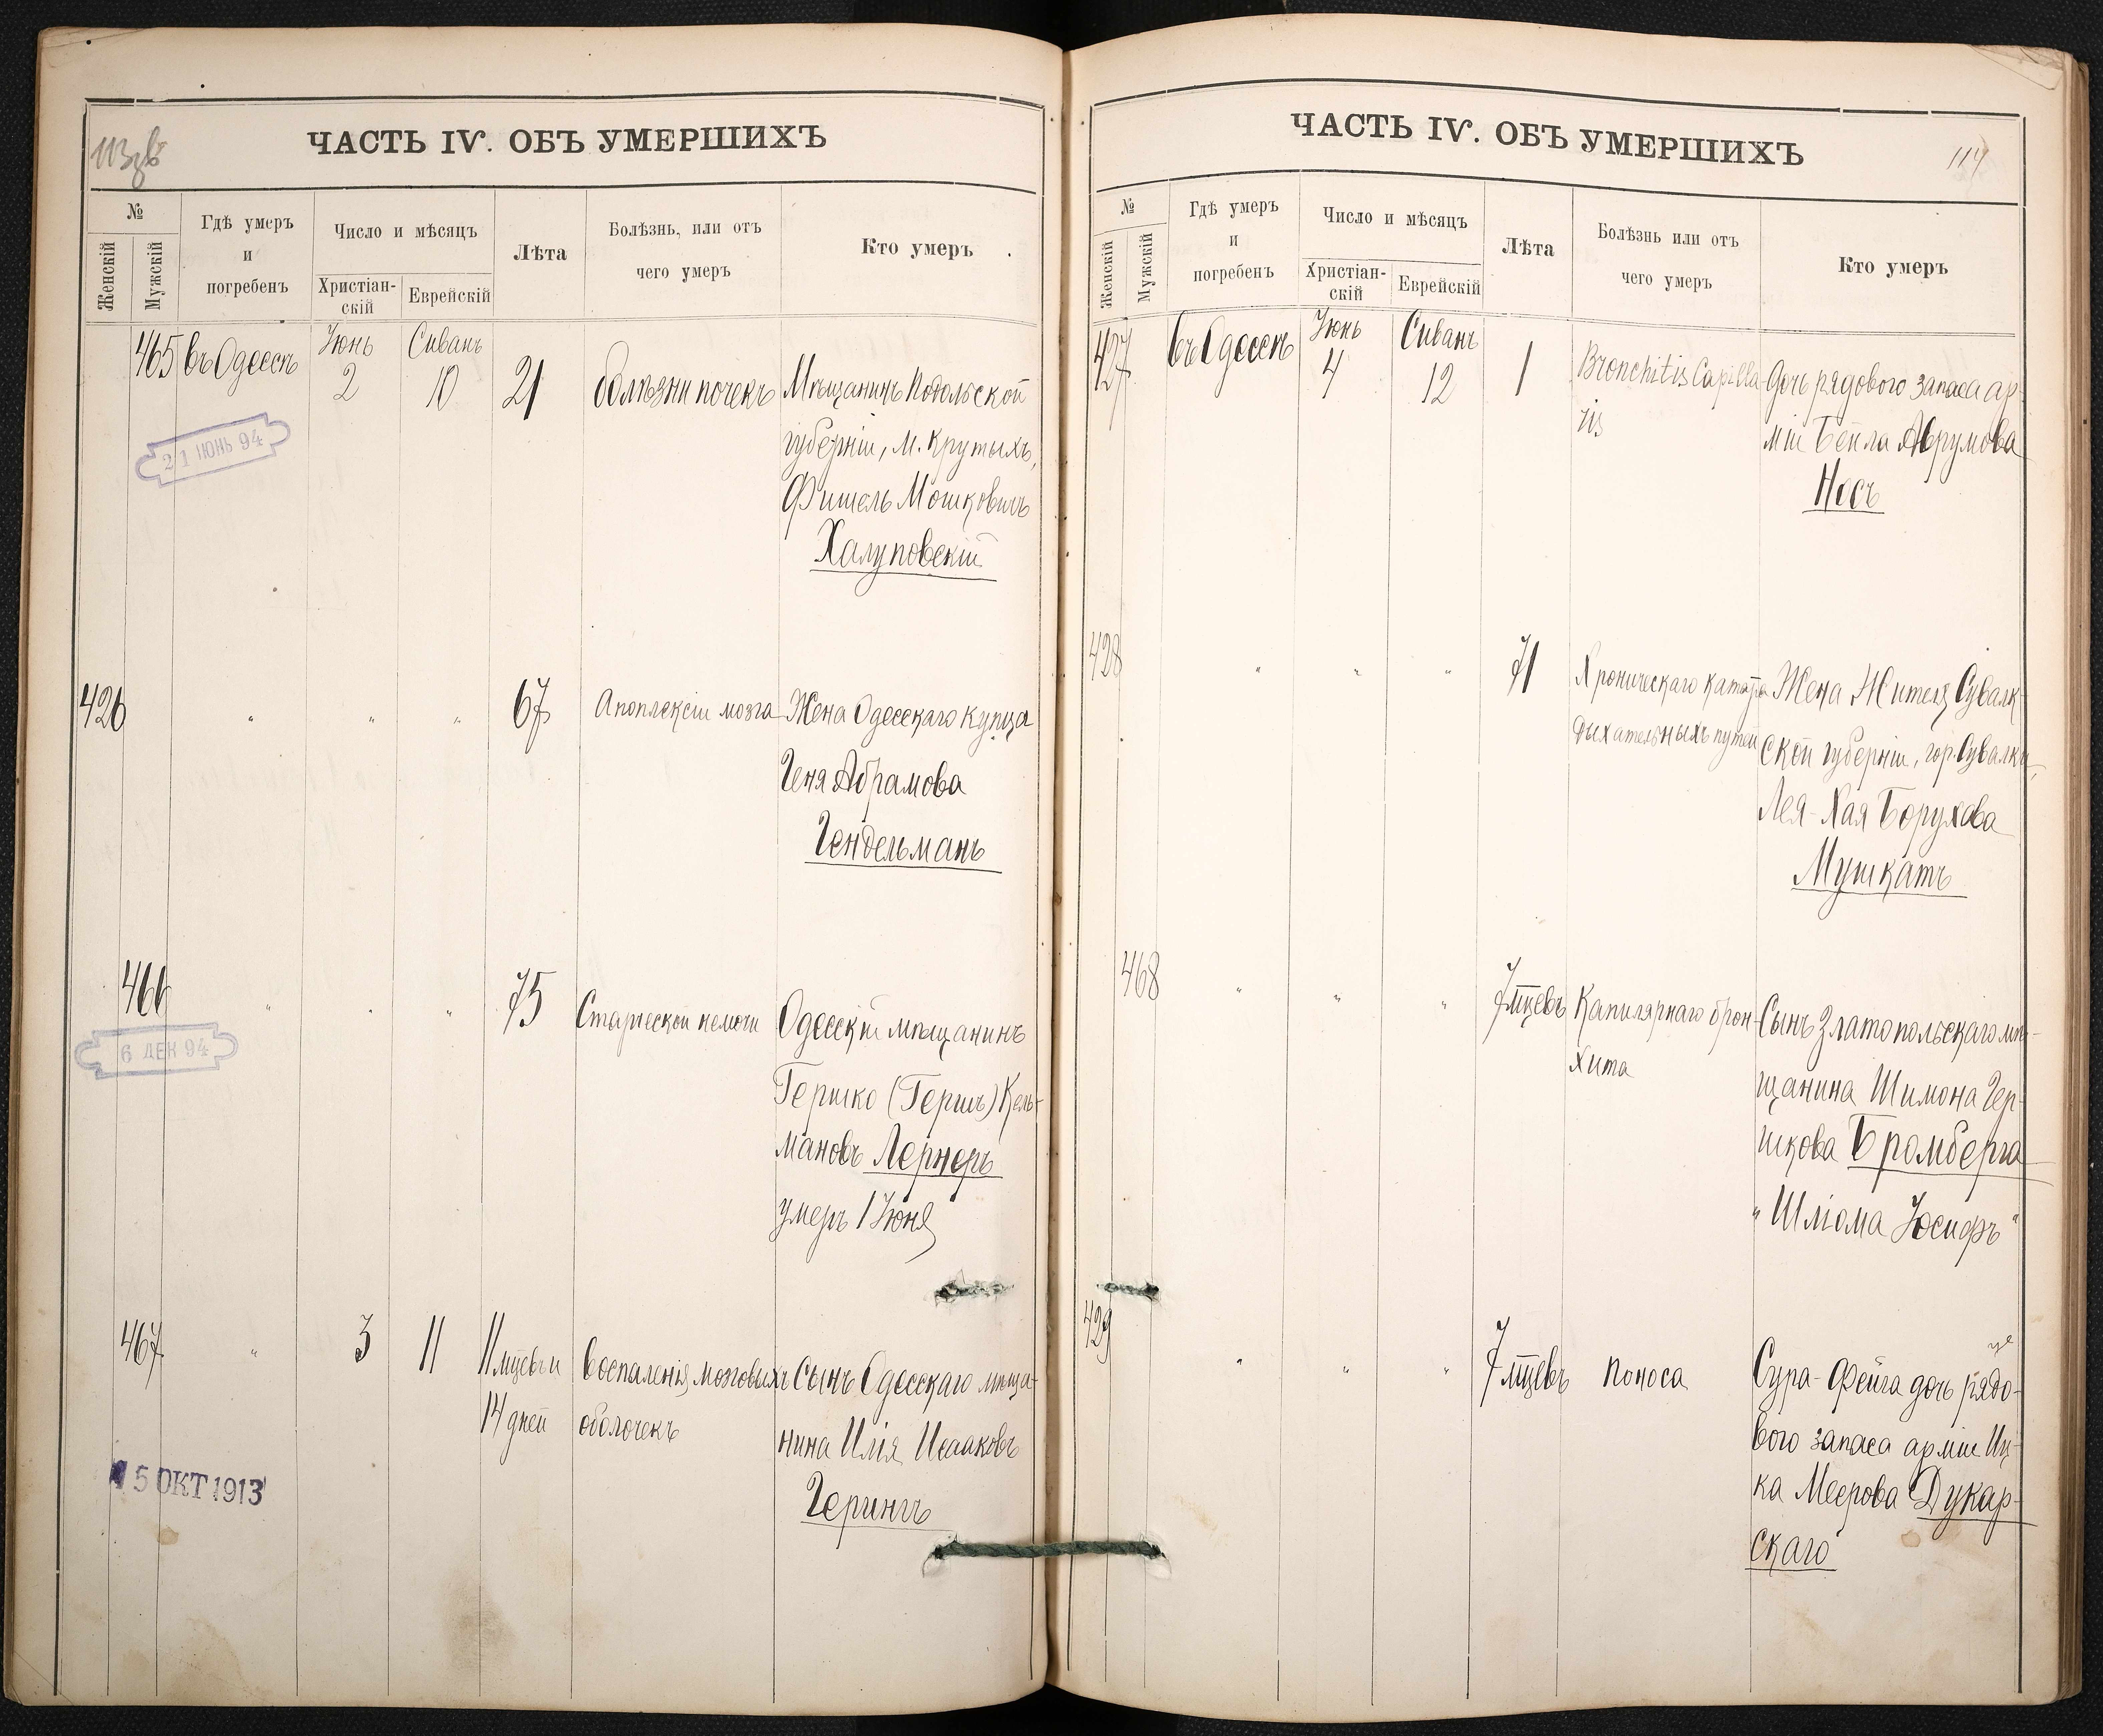 ЧАСТЬ IV. ОБЪ УМЕРШИХЪ
№
Женскій
Мужскій
Гдѣ умеръ
и
погребенъ
Число и мѣсяцъ
Христіан-
скій
Еврейскій
Лѣта
Болѣзнь, или отъ
чего умеръ
Кто умеръ
465 въ Одессѣ Іюнь 2 Сиванъ 10 21 болѣзни почекъ Мѣщанинъ Подольской
губерніи, м. Крутыхъ,
Фишель Мошковичъ
Халуповскій
21 ІЮНЬ 94
426 " " " 67 Апоплексіи мозга Жена Одесскаго купца
Геня Абрамова
Гендельманъ
466 " " " 75 Старческой немочи Одесскій мѣщанинъ
Гершко (Гершъ) Кель-
мановъ Лернеръ
умеръ 1 Іюня
6 ДЕК 94
467 " 3 11 11 мцевъ и Воспаленія мозговыхъ Сынъ Одесскаго мѣща-
14 дней оболочекъ нина Илія Исааковъ
Герингъ
15 ОКТ 1913
ЧАСТЬ IV. ОБЪ УМЕРШИХЪ
114
№
Женскій
Мужскій
Гдѣ умеръ
и
погребенъ
Число и мѣсяцъ
Христіан-
скій
Еврейскій
Лѣта
Болѣзнь или отъ
чего умеръ
Кто умеръ
427 въ Одессѣ Іюнь 4 Сиванъ 12 1 Bronchitis Capilla- Дочь рядового запаса ар-
ris міи Бейла Аврумова
Носъ
428 " " " 71 Хроническаго катара Жена Жителя Сувалк-
дыхательныхъ путей ской губерніи, гор. Сувалки,
Лея-Хая Борухова
Мушкатъ
468 " " " 7 мцевъ Капилярнаго брон- Сынъ Златопольскаго мѣ-
хита щанина Шимона Гер-
шкова Бромберга
"Шліома Іосифъ"
429 " " " 7 мцевъ Поноса Сура-Фейга дочь рядо-
вого запаса арміи Иц-
ка Меерова Дукар-
скаго